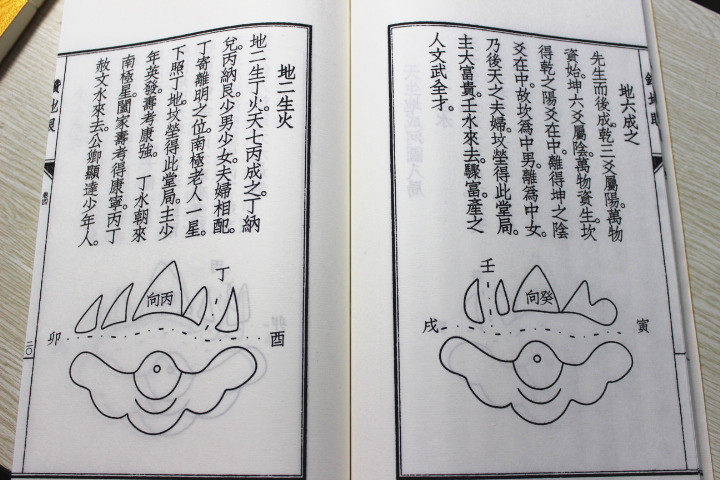 地六成之
先生而後成。乾三爻屬陽。萬物
資始。坤六爻屬陰。萬物資生。坎
得乾之陽爻在中。離得坤之陰
爻在中。故坎為中男。離為中女。
乃後天之夫婦。坟塋得此堂局。
主大富貴。壬水來去。驟富。產之
人文武全才。
壬
向癸
戌
寅
地二生火
地二生丁火。天七丙成之。丁納
兌。丙納艮。少男少女。夫婦相配。
丁寄離明之位。南極老人一星。
下照丁地。坟塋得此堂局。主少
年英發。壽考康強。 丁水朝來
南極星。闔家壽考得康寧。丙丁
赦文水來去。公卿顯達少年人。
丁
向丙
卯
酉
鑽地眼
二〇